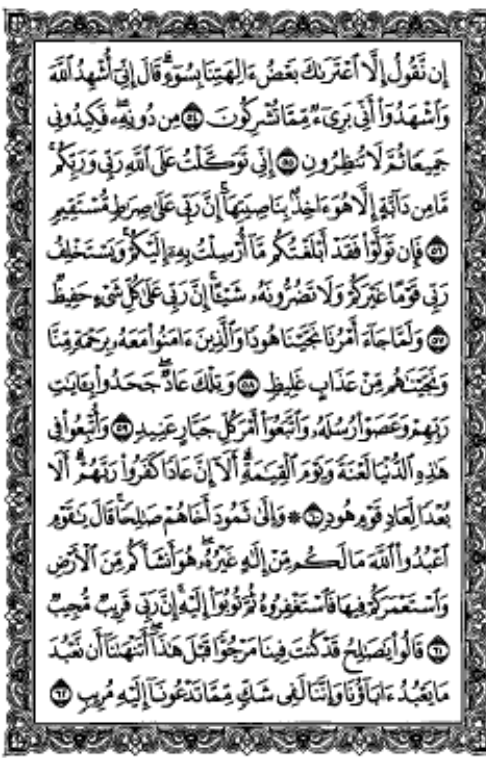 إِن نَّقُولُ إِلَّا ٱعْتَرَىٰكَ بَعْضُ ءَالِهَتِنَا بِسُوٓءٍ ۗ قَالَ إِنِّىٓ أُشْهِدُ ٱللَّهَ
وَٱشْهَدُوٓا۟ أَنِّى بَرِىٓءٌ مِّمَّا تُشْرِكُونَ ٥٤ مِن دُونِهِۦ ۖ فَكِيدُونِى
جَمِيعًا ثُمَّ لَا تُنظِرُونِ ٥٥ إِنِّى تَوَكَّلْتُ عَلَى ٱللَّهِ رَبِّى وَرَبِّكُم ۚ
مَّا مِن دَآبَّةٍ إِلَّا هُوَ ءَاخِذٌۢ بِنَاصِيَتِهَآ ۚ إِنَّ رَبِّى عَلَىٰ صِرَٰطٍ مُّسْتَقِيمٍ
٥٦ فَإِن تَوَلَّوْا۟ فَقَدْ أَبْلَغْتُكُم مَّآ أُرْسِلْتُ بِهِۦٓ إِلَيْكُمْ ۚ وَيَسْتَخْلِفُ
رَبِّى قَوْمًا غَيْرَكُمْ وَلَا تَضُرُّونَهُۥ شَيْـًٔا ۚ إِنَّ رَبِّى عَلَىٰ كُلِّ شَىْءٍ حَفِيظٌ
٥٧ وَلَمَّا جَآءَ أَمْرُنَا نَجَّيْنَا هُودًا وَٱلَّذِينَ ءَامَنُوا۟ مَعَهُۥ بِرَحْمَةٍ مِّنَّا
وَنَجَّيْنَٰهُم مِّنْ عَذَابٍ غَلِيظٍ ٥٨ وَتِلْكَ عَادٌ ۖ جَحَدُوا۟ بِـَٔايَٰتِ
رَبِّهِمْ وَعَصَوْا۟ رُسُلَهُۥ وَٱتَّبَعُوٓا۟ أَمْرَ كُلِّ جَبَّارٍ عَنِيدٍ ٥٩ وَأُتْبِعُوا۟ فِى
هَٰذِهِ ٱلدُّنْيَا لَعْنَةً وَيَوْمَ ٱلْقِيَٰمَةِ ۗ أَلَآ إِنَّ عَادًا كَفَرُوا۟ رَبَّهُمْ ۗ أَلَا
بُعْدًا لِّعَادٍ قَوْمِ هُودٍ ٦٠ ۞ وَإِلَىٰ ثَمُودَ أَخَاهُمْ صَٰلِحًا ۚ قَالَ يَٰقَوْمِ
ٱعْبُدُوا۟ ٱللَّهَ مَا لَكُم مِّنْ إِلَٰهٍ غَيْرُهُۥ ۖ هُوَ أَنشَأَكُم مِّنَ ٱلْأَرْضِ
وَٱسْتَعْمَرَكُمْ فِيهَا فَٱسْتَغْفِرُوهُ ثُمَّ تُوبُوٓا۟ إِلَيْهِ ۚ إِنَّ رَبِّى قَرِيبٌ مُّجِيبٌ
٦١ قَالُوا۟ يَٰصَٰلِحُ قَدْ كُنتَ فِينَا مَرْجُوًّا قَبْلَ هَٰذَآ ۖ أَتَنْهَىٰنَآ أَن نَّعْبُدَ
مَا يَعْبُدُ ءَابَآؤُنَا وَإِنَّنَا لَفِى شَكٍّ مِّمَّا تَدْعُونَآ إِلَيْهِ مُرِيبٍ ٦٢